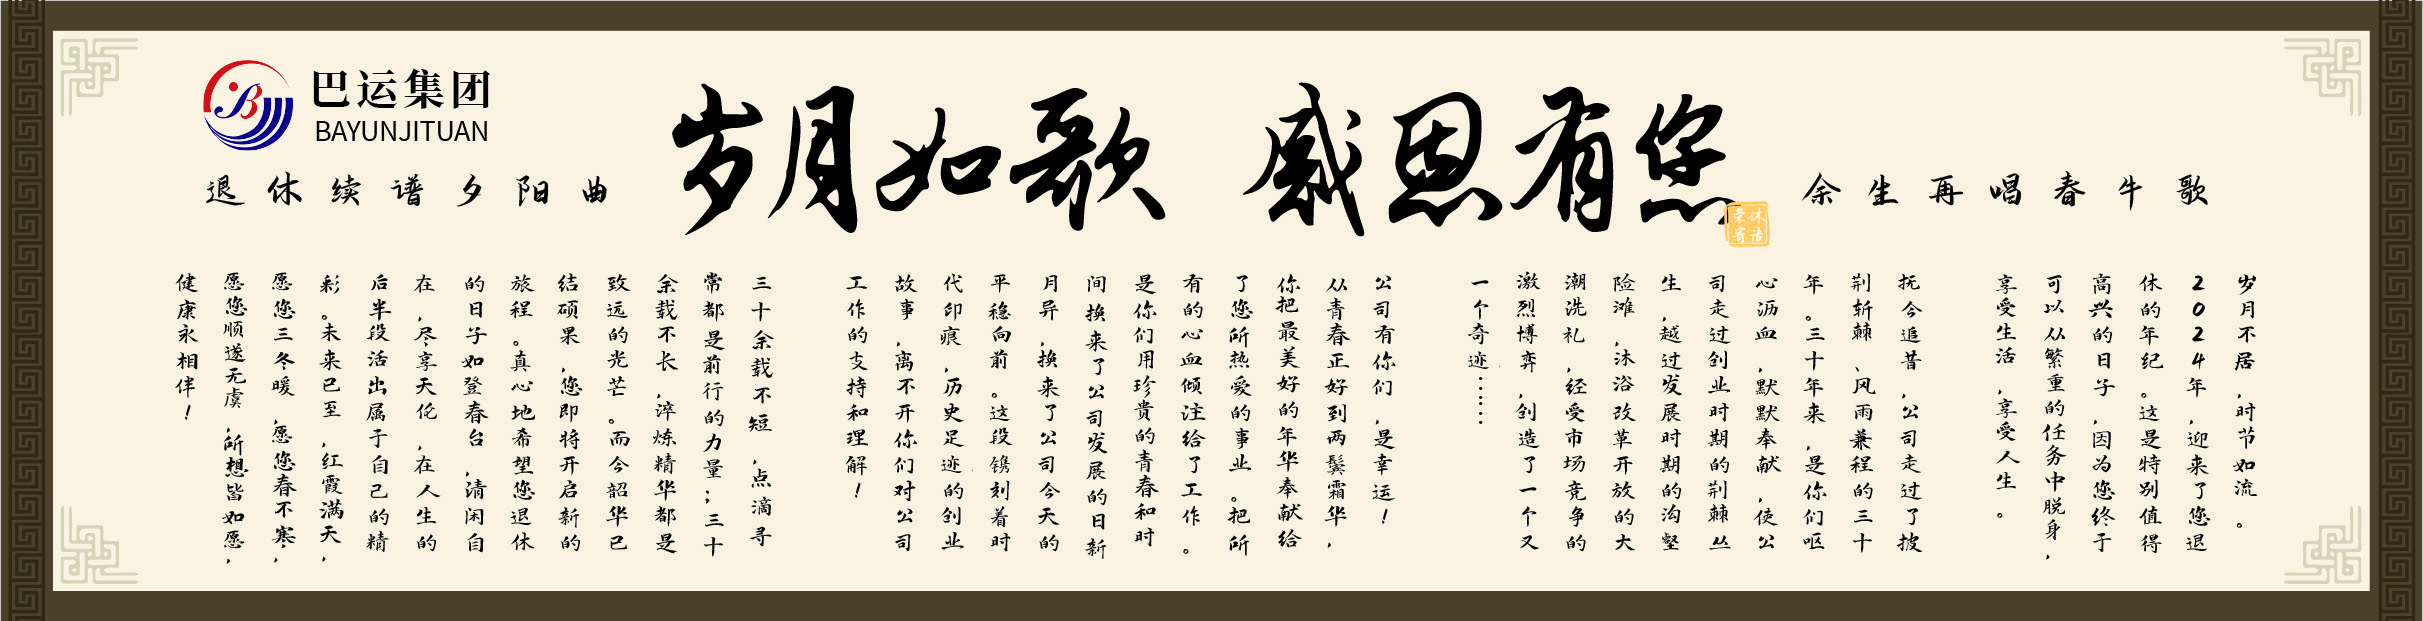 巴运集团
BAYUNJITUAN
岁月如歌 感恩有您
荣休
寄语
退休续谱夕阳曲
余生再唱春牛歌
岁月不居,时节如流。
2024年,迎来了您退
休的年纪。这是特别值得
高兴的日子,因为您终于
可以从繁重的任务中脱身,
享受生活,享受人生。
抚今追昔,公司走过了披
荆斩棘、风雨兼程的三十
年。三十年来,是你们呕
心沥血,默默奉献,使公
司走过创业时期的荆棘丛
生,越过发展时期的沟壑
险滩,沐浴改革开放的大
潮洗礼,经受市场竞争的
激烈博弈,创造了一个又
一个奇迹……
公司有你们,是幸运!
从青春正好到两鬓霜华,
你把最美好的年华奉献给
了您所热爱的事业。把所
有的心血倾注给了工作。
是你们用珍贵的青春和时
间换来了公司发展的日新
月异,换来了公司今天的
平稳向前。这段镌刻着时
代印痕,历史足迹的创业
故事,离不开你们对公司
工作的支持和理解!
三十余载不短,点滴寻
常都是前行的力量;三十
余载不长,淬炼精华都是
致远的光芒。而今韶华已
结硕果,您即将开启新的
旅程。真心地希望您退休
的日子如登春台,清闲自
在,尽享天伦,在人生的
后半段活出属于自己的精
彩。未来已至,红霞满天,
愿您三冬暖,愿您春不寒,
愿您顺遂无虞,所想皆如愿,
健康永相伴!